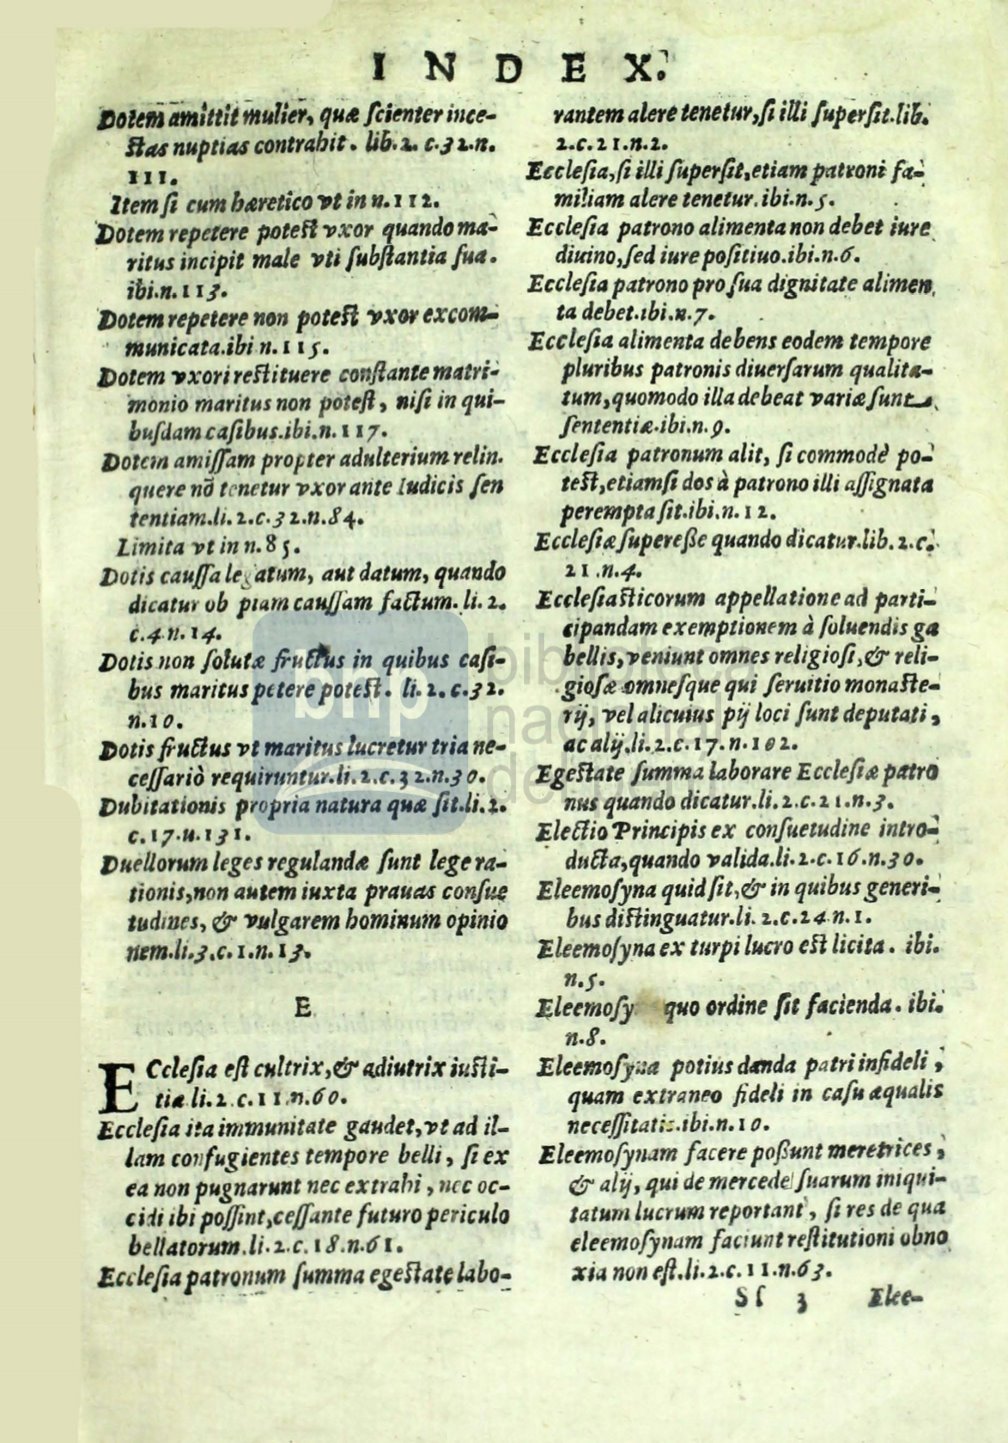 INDEX.
Dotem amittit mulier, quæ ſcienter ince-
ſtas nuptias contrahit. lib. 2. c. 32. n.
111.
Item ſi cum hæretico vt in n. 112.
Dotem repetere poteſt vxor quando ma-
ritus incipit male vti ſubſtantia ſua.
ibi. n. 113.
Dotem repetere non poteſt vxor excom-
municata. ibi n. 115.
Dotem vxori reſtituere conſtante matri-
monio maritus non poteſt, niſi in qui-
buſdam caſibus. ibi. n. 117.
Dotem amiſſam propter adulterium relin.
quere nō tenetur vxor ante Iudicis ſen
tentiam. li. 2. c. 32. n. 84.
Limita vt in n. 85.
Dotis cauſſa legatum, aut datum, quando
dicatur ob piam cauſſam factum. li. 2.
c. 4. n. 14.
Dotis non ſolutæ fructus in quibus caſi-
bus maritus petere poteſt. li. 2. c. 32.
n. 10.
Dotis fructus vt maritus lucretur tria ne-
ceſſariò requiruntur. li. 2. c. 32. n. 30.
Dubitationis propria natura quæ ſit. li. 2.
c. 17. n. 131.
Duellorum leges regulandæ ſunt lege ra-
tionis, non autem iuxta prauas conſue
tudines, & vulgarem hominum opinio
nem. li. 3. c. 1. n. 13.
E
ECcleſia eſt cultrix, & adiutrix iuſti-
tiæ li. 2. c. 11. n. 60.
Eccleſia ita immunitate gaudet, vt ad il-
lam confugientes tempore belli, ſi ex
ea non pugnarunt nec extrahi, nec oc-
cidi ibi poſſint, ceſſante futuro periculo
bellatorum. li. 2. c. 18. n. 61.
Eccleſia patronum ſumma egeſtate labo-
rantem alere tenetur, ſi illi ſuperſit. lib.
2. c. 21. n. 2.
Eccleſia, ſi illi ſuperſit, etiam patroni fa-
miliam alere tenetur. ibi. n. 5.
Eccleſia patrono alimenta non debet iure
diuino, ſed iure poſitiuo. ibi. n. 6.
Eccleſia patrono pro ſua dignitate alimen
ta debet. ibi. n. 7.
Eccleſia alimenta debens eodem tempore
pluribus patronis diuerſarum qualita-
tum, quomodo illa debeat variæ ſunt
ſententiæ. ibi. n. 9.
Eccleſia patronum alit, ſi commodè po-
teſt, etiamſi dos à patrono illi aſſignata
perempta ſit. ibi. n. 12.
Eccleſiæ ſupereße quando dicatur. lib. 2. c.
21. n. 4.
Eccleſiaſticorum appellatione ad parti-
cipandam exemptionem à ſoluendis ga
bellis, veniunt omnes religioſi, & reli-
gioſæ omneſque qui ſeruitio monaſte-
rij, vel alicuius pij loci ſunt deputati,
ac alij. li. 2. c. 17. n. 102.
Egeſtate ſumma laborare Eccleſiæ patro
nus quando dicatur. li. 2. c. 21. n. 3.
Electio Principis ex conſuetudine intro-
ducta, quando valida. li. 2. c. 16. n. 30.
Eleemoſyna quid ſit, & in quibus generi-
bus diſtinguatur. li. 2. c. 24 n. 1.
Eleemoſyna ex turpi lucro eſt licita. ibi.
n. 5.
Eleemoſy quo ordine ſit facienda. ibi.
n. 8.
Eleemoſyna potius danda patri infideli,
quam extraneo fideli in caſu æqualis
neceſſitatis. ibi. n. 10.
Eleemoſynam facere poßunt meretrices,
& alij, qui de mercede ſuarum iniqui-
tatum lucrum reportant, ſi res de qua
eleemoſynam faciunt reſtitutioni obno
xia non eſt. li. 2. c. 11. n. 63.
Sſ 3 Elee-
bnp